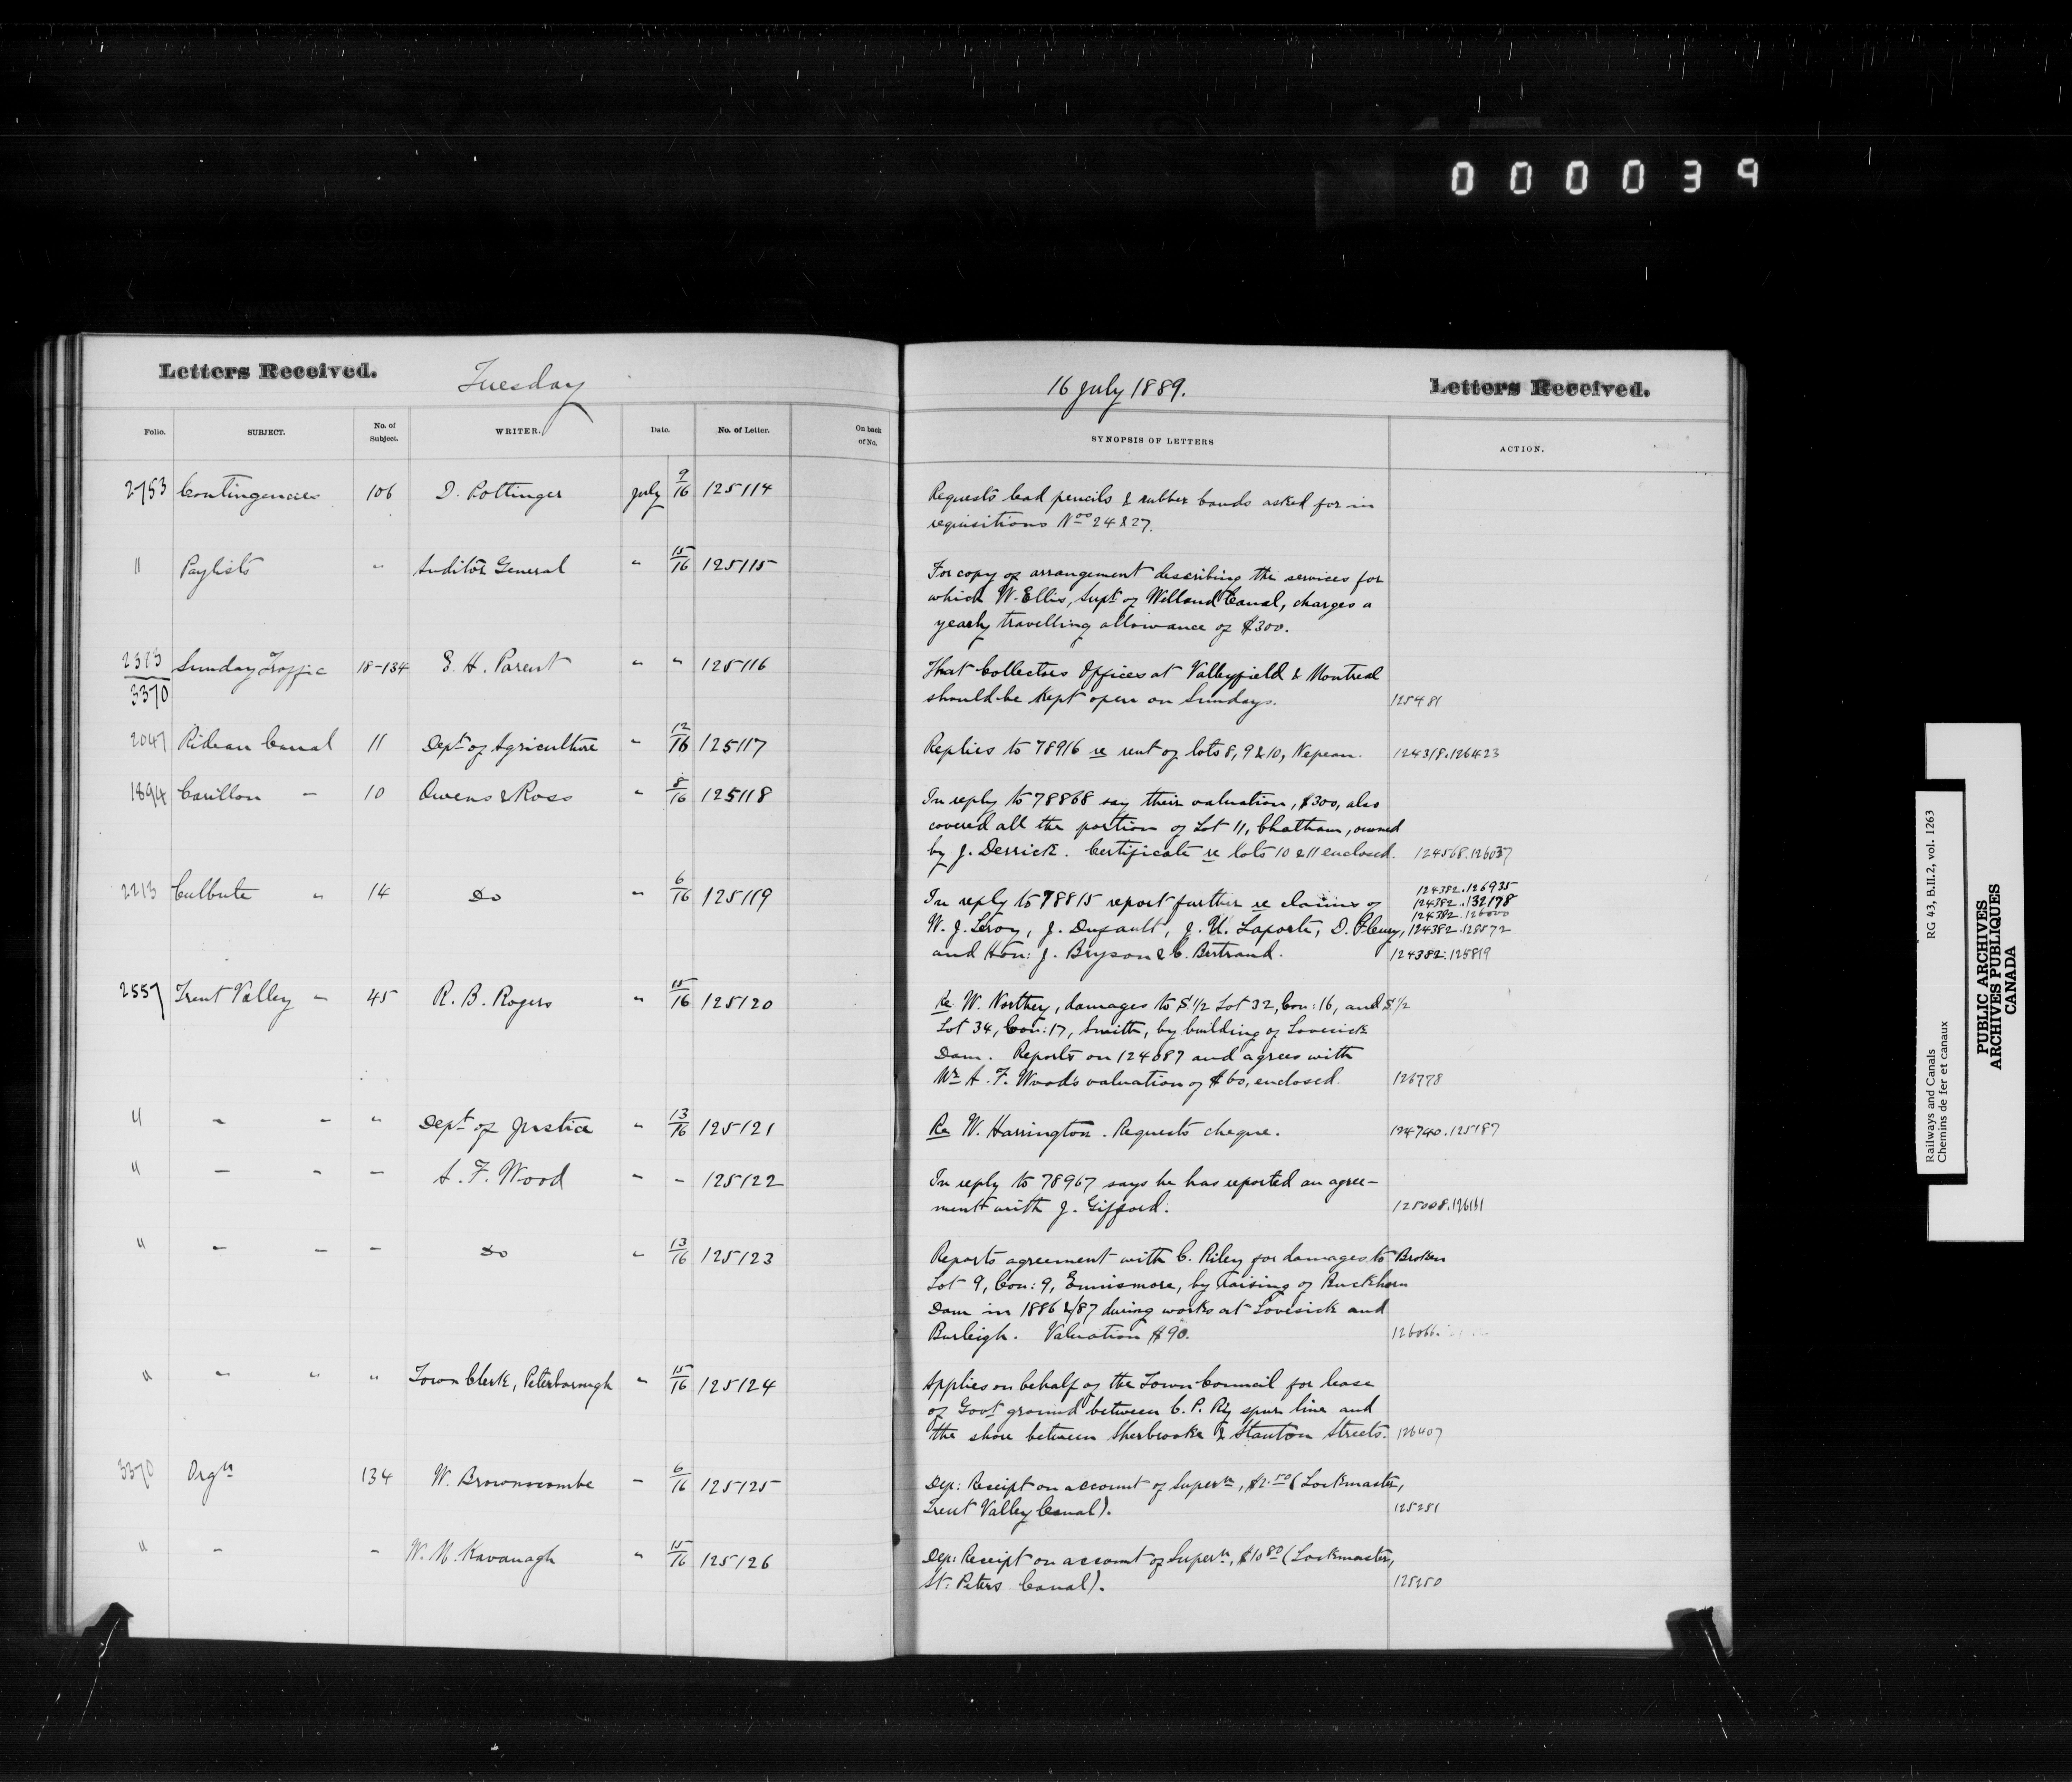 000039
Letters Received. Tuesday
16 July 1889. Letters Received.
Folio. SUBJECT. No. of Subject. WRITER. Date. No. of Letter. On back of No.
SYNOPSIS OF LETTERS ACTION.
2753 Contingencies 106 D. Pottinger July 9/16 125114
Requests lead pencils & rubber bands asked for in
requisitions Nos 24 & 27.
" Paylists " Auditor General " 15/16 125115
For copy of arrangement describing the services for
which W. Ellis, Supt of Welland Canal, charges a
yearly travelling allowance of $300.
Sunday Traffic 18-134 E. H. Parent " " 125116
3370
That Collectors Offices at Valleyfield & Montreal
should be kept open on Sundays. 125481
2047 Rideau Canal 11 Dept of Agriculture " 12/16 125117
Replies to 78916 re rent of lots 8, 9 & 10, Nepean. 124318.126423
1894 Carillon - 10 Owens & Ross " 8/16 125118
In reply to 78868 say their valuation, $300, also
covered all the portion of Lot 11, Chatham, owned
by J. Derrick. Certificate re lots 10 & 11 enclosed. 124568.126037
2213 Culbute " 14 Do " 6/16 125119
124382.126935
In reply to 78815 report further re claims of 124382.132178
124382.126000
W. J. Leroy, J. Dufault, J. U. Laporte, D. Fleury, 124382.128572
and Hon: J. Bryson & C. Bertrand. 124382.125819
2557 Trent Valley " 45 R. B. Rogers " 15/16 125120
Re W. Northey, damages to S 1/2 Lot 32, Con: 16, and S 1/2
Lot 34, Con: 17, Smith, by building of Lovesick
Dam. Reports on 124087 and agrees with
Mr A. F. Wood's valuation of $60, enclosed. 126778
" " " " Dept of Justice " 13/16 125121
Re W. Harrington. Requests cheque. 124740.125187
" - - - A. F. Wood - - 125122
In reply to 78967 says he has reported an agree-
ment with J. Gifford. 125008.126131
" - - - Do " 13/16 125123
Reports agreement with C. Riley for damages to Broken
Lot 9, Con: 9, Ennismore, by raising of Buckhorn
Dam in 1886 & /87 during works at Lovesick and
Burleigh. Valuation $90. 126066.
" " " " Town Clerk, Peterborough " 15/16 125124
Applies on behalf of the Town Council for lease
of Govt ground between C. P. Ry spur line and
the shore between Sherbrooke & Stanton Streets. 126407
3370 Orgn 134 W. Brownscombe - 6/16 125125
Dep: Receipt on account of Supern, $2.50 (Lockmaster,
Trent Valley Canal). 125251
" - - W. M. Kavanagh " 15/16 125126
Dep: Receipt on account of Supern, $10.80 (Lockmaster,
St: Peters Canal). 125250
Railways and Canals RG 43, B.II.2, vol. 1263
Chemins de fer et canaux
PUBLIC ARCHIVES
ARCHIVES PUBLIQUES
CANADA